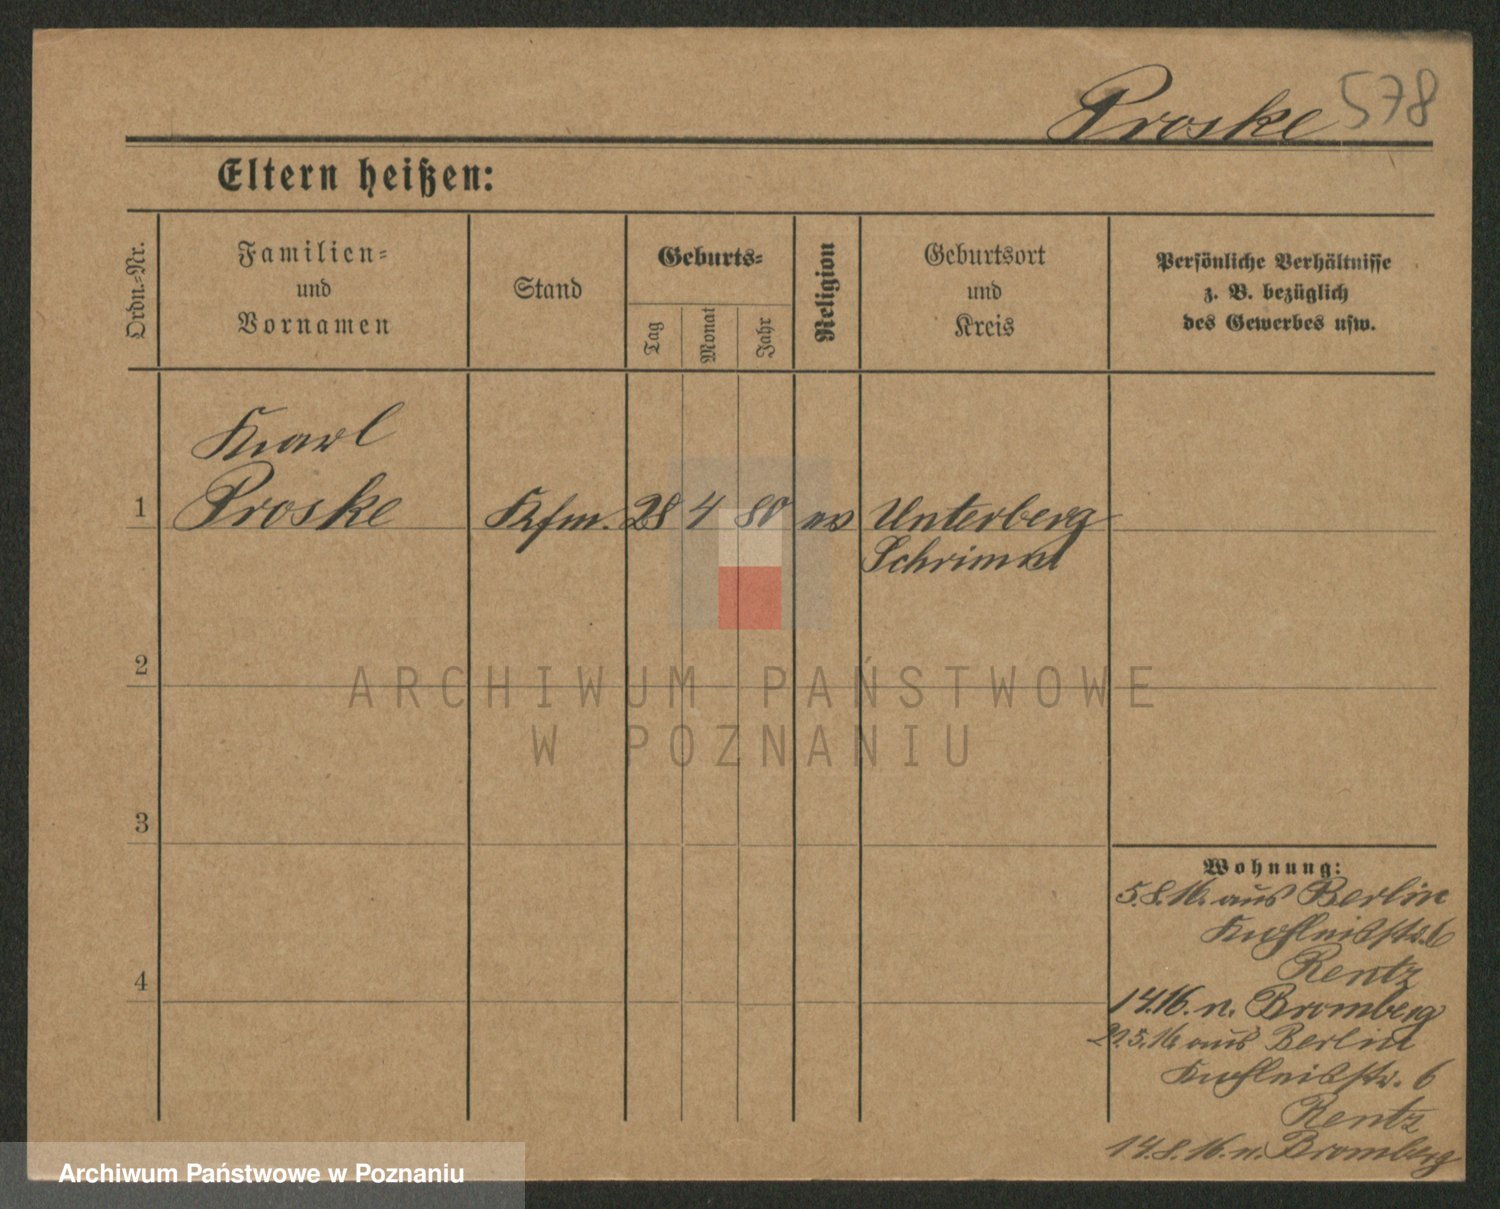 Proske 578
Eltern heißen:
Ordn.-Nr.
Familien-
und
Vornamen
Stand
Geburts-
Tag
Monat
Jahr
Religion
Geburtsort
und
Kreis
Persönliche Verhältnisse
z. B. bezüglich
des Gewerbes usw.
Karl
1 Proske Kfm. 28 4 80 ev Unterberg
Schrimm
2
ARCHIWUM PAŃSTWOWE
W POZNANIU
3
Wohnung:
5.8.16. aus Berlin
6
Rentz
n. Bromberg
5.16 aus Berlin
6
Rentz
14.8.16. n. Bromberg
4
Archiwum Państwowe w Poznaniu